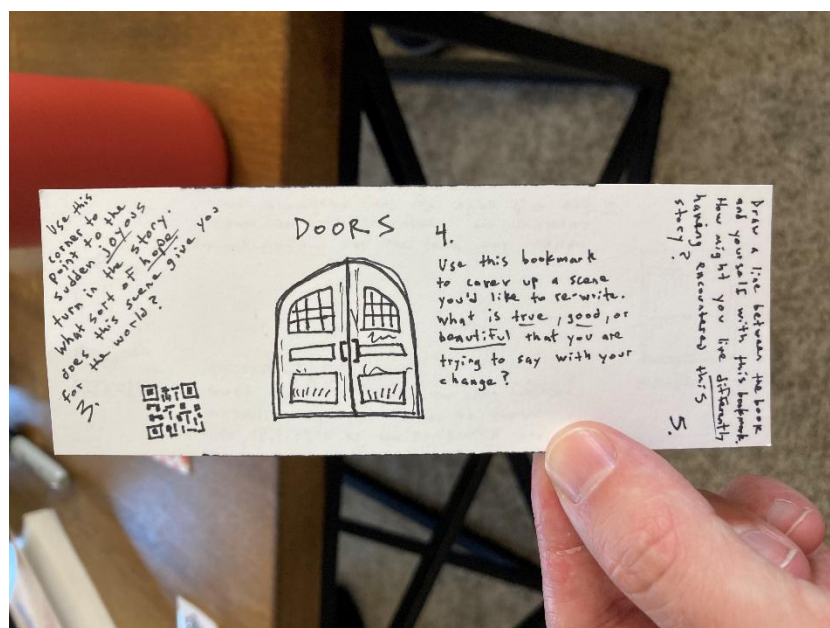 Use this
corner to
point to the
sudden joyous
turn in the story.
What sort of hope
does this scene give you
for the world?
3.
DOORS
4.
Use this bookmark
to cover up a scene
you'd like to re-write.
What is true, good, or
beautiful that you are
trying to say with your
change?
Draw a line between the book
and yourself with this bookmark.
How might you live differently
having encountered this
story?
5.